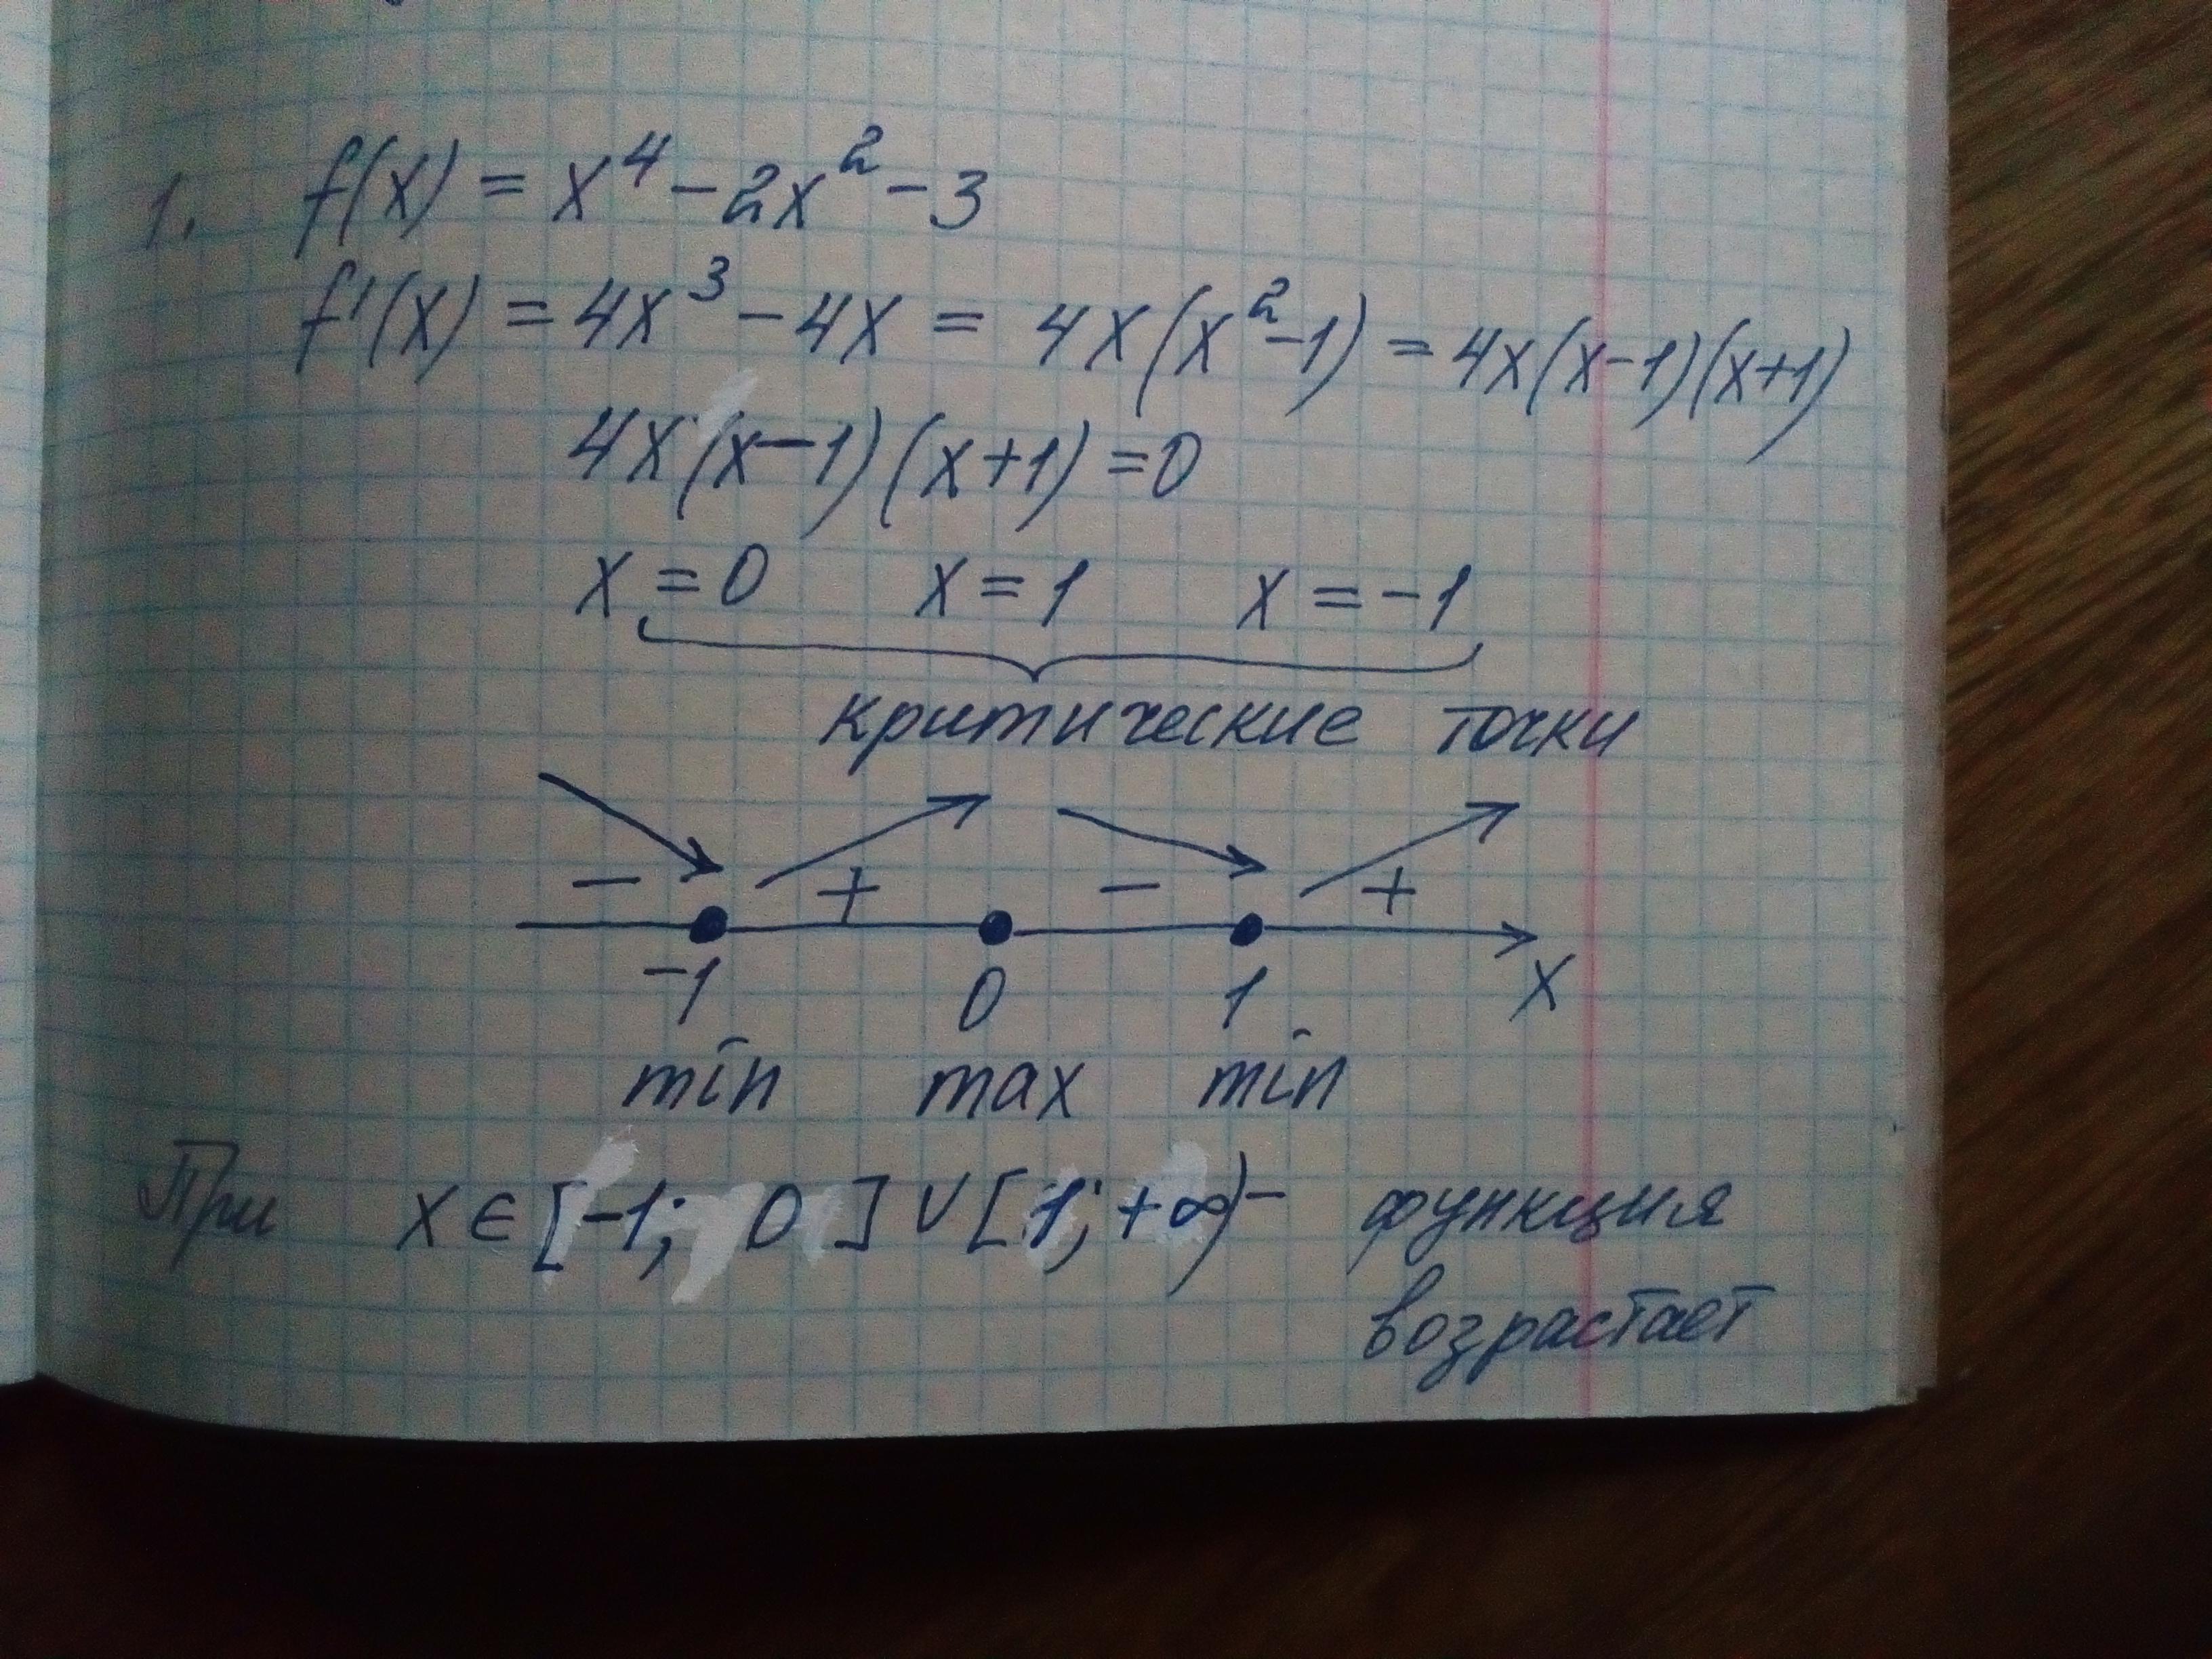 1. f(x) = x⁴ - 2x² - 3
f'(x) = 4x³ - 4x = 4x(x²-1) = 4x(x-1)(x+1)
4x(x-1)(x+1) = 0
x = 0 x = 1 x = -1
критические точки
- + - +
-1 0 1 x
min max min
При x ∈ [-1; 0] ∪ [1; +∞) - функция
возрастает